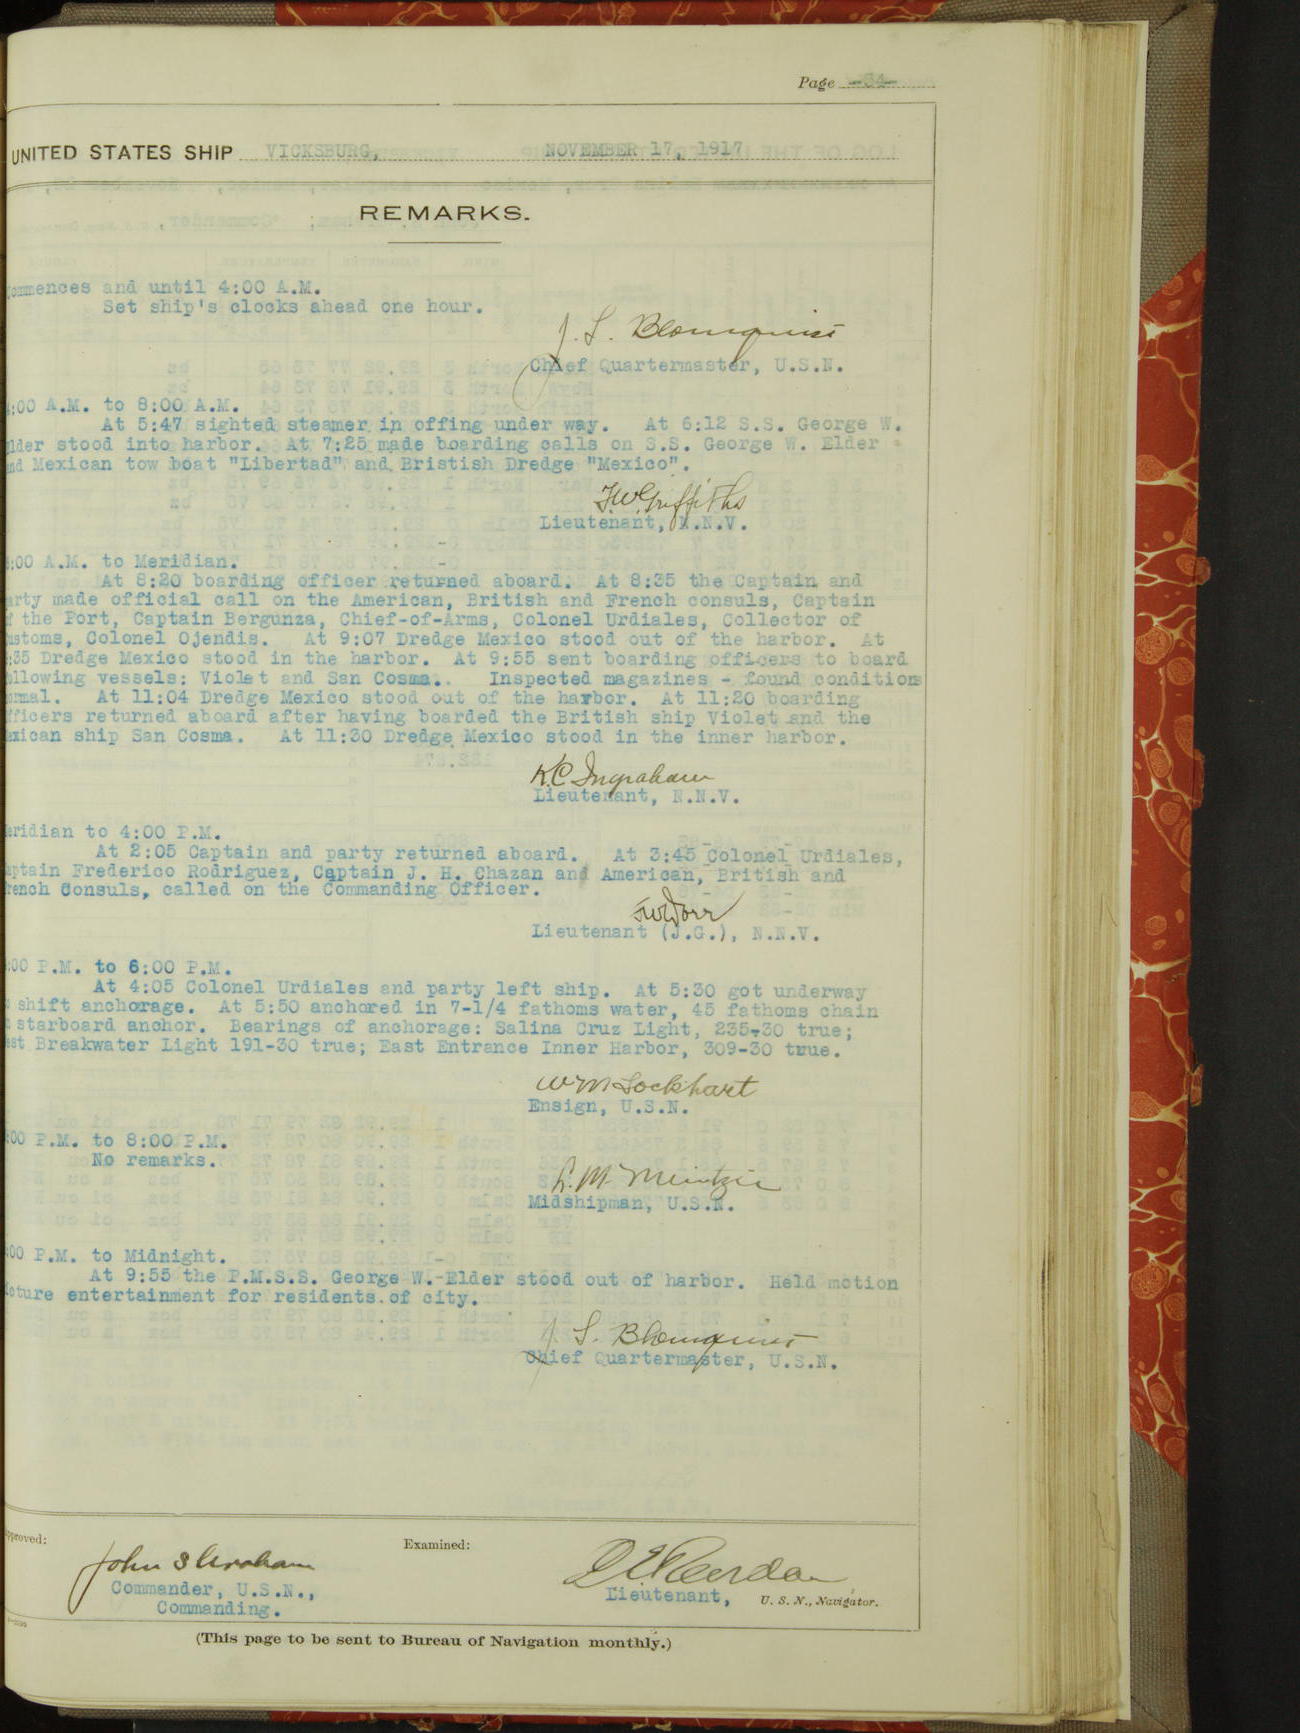 Page -34-
UNITED STATES SHIP VICKSBURG, NOVEMBER 17, 1917
REMARKS.
ommences and until 4:00 A.M.
Set ship's clocks ahead one hour.
J. S. Blomquist
Chief Quartermaster, U.S.N.
4:00 A.M. to 8:00 A.M.
At 5:47 sighted steamer in offing under way. At 6:12 S.S. George W.
Elder stood into harbor. At 7:25 made boarding calls on S.S. George W. Elder
and Mexican tow boat "Libertad" and Bristish Dredge "Mexico".
F.W. Griffiths
Lieutenant, N.N.V.
8:00 A.M. to Meridian.
At 8:20 boarding officer returned aboard. At 8:35 the Captain and
arty made official call on the American, British and French consuls, Captain
of the Port, Captain Bergunza, Chief-of-Arms, Colonel Urdiales, Collector of
ustoms, Colonel Ojendis. At 9:07 Dredge Mexico stood out of the harbor. At
:35 Dredge Mexico stood in the harbor. At 9:55 sent boarding officers to board
ollowing vessels: Violet and San Cosma.. Inspected magazines - found conditions
ormal. At 11:04 Dredge Mexico stood out of the harbor. At 11:20 boarding
fficers returned aboard after having boarded the British ship Violet and the
exican ship San Cosma. At 11:30 Dredge Mexico stood in the inner harbor.
K.C. Ingraham
Lieutenant, N.N.V.
eridian to 4:00 P.M.
At 2:05 Captain and party returned aboard. At 3:45 Colonel Urdiales,
aptain Frederico Rodriguez, Captain J. H. Chazan and American, British and
rench Consuls, called on the Commanding Officer.
Dorr
Lieutenant (J.G.), N.N.V.
:00 P.M. to 6:00 P.M.
At 4:05 Colonel Urdiales and party left ship. At 5:30 got underway
shift anchorage. At 5:50 anchored in 7-1/4 fathoms water, 45 fathoms chain
starboard anchor. Bearings of anchorage: Salina Cruz Light, 235-30 true;
est Breakwater Light 191-30 true; East Entrance Inner Harbor, 309-30 true.
Wm Lockhart
Ensign, U.S.N.
:00 P.M. to 8:00 P.M.
No remarks.
L. M. Meintzer
Midshipman, U.S.N.
:00 P.M. to Midnight.
At 9:55 the P.M.S.S. George W. Elder stood out of harbor. Held motion
icture entertainment for residents of city.
J. S. Blomquist
Chief Quartermaster, U.S.N.
pproved:
Examined:
John S Graham
Commander, U.S.N.,
Commanding.
Lieutenant, U. S. N., Navigator.
(This page to be sent to Bureau of Navigation monthly.)